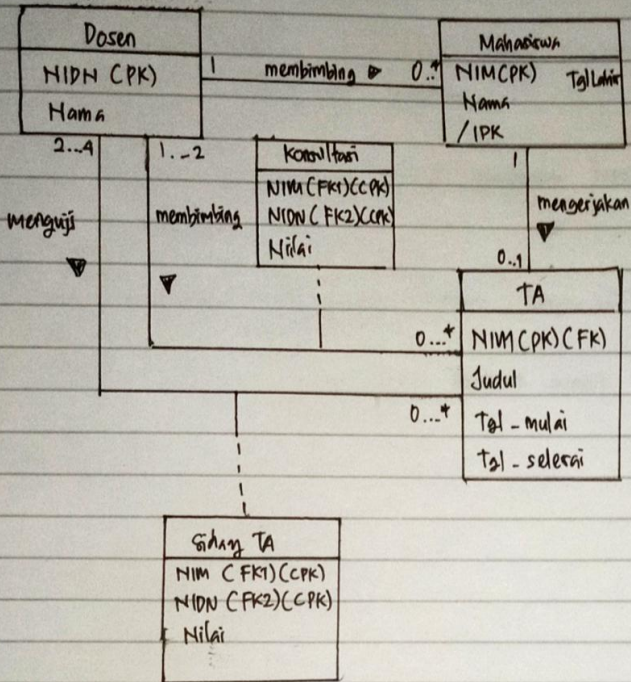 Dosen
NIDN (PK)
Nama
1 membimbing 0..*
Mahasiswa
NIM(PK) Tgl Lahir
Nama
/IPK
2...4
1...2
menguji
membimbing
Konsultasi
NIM (FK1)(CPK)
NIDN (FK2)(CPK)
Nilai
1
mengerjakan
0..1
TA
NIM (PK) (FK)
Judul
Tgl - mulai
Tgl - selesai
0...*
0...*
Sidang TA
NIM (FK1)(CPK)
NIDN (FK2)(CPK)
Nilai